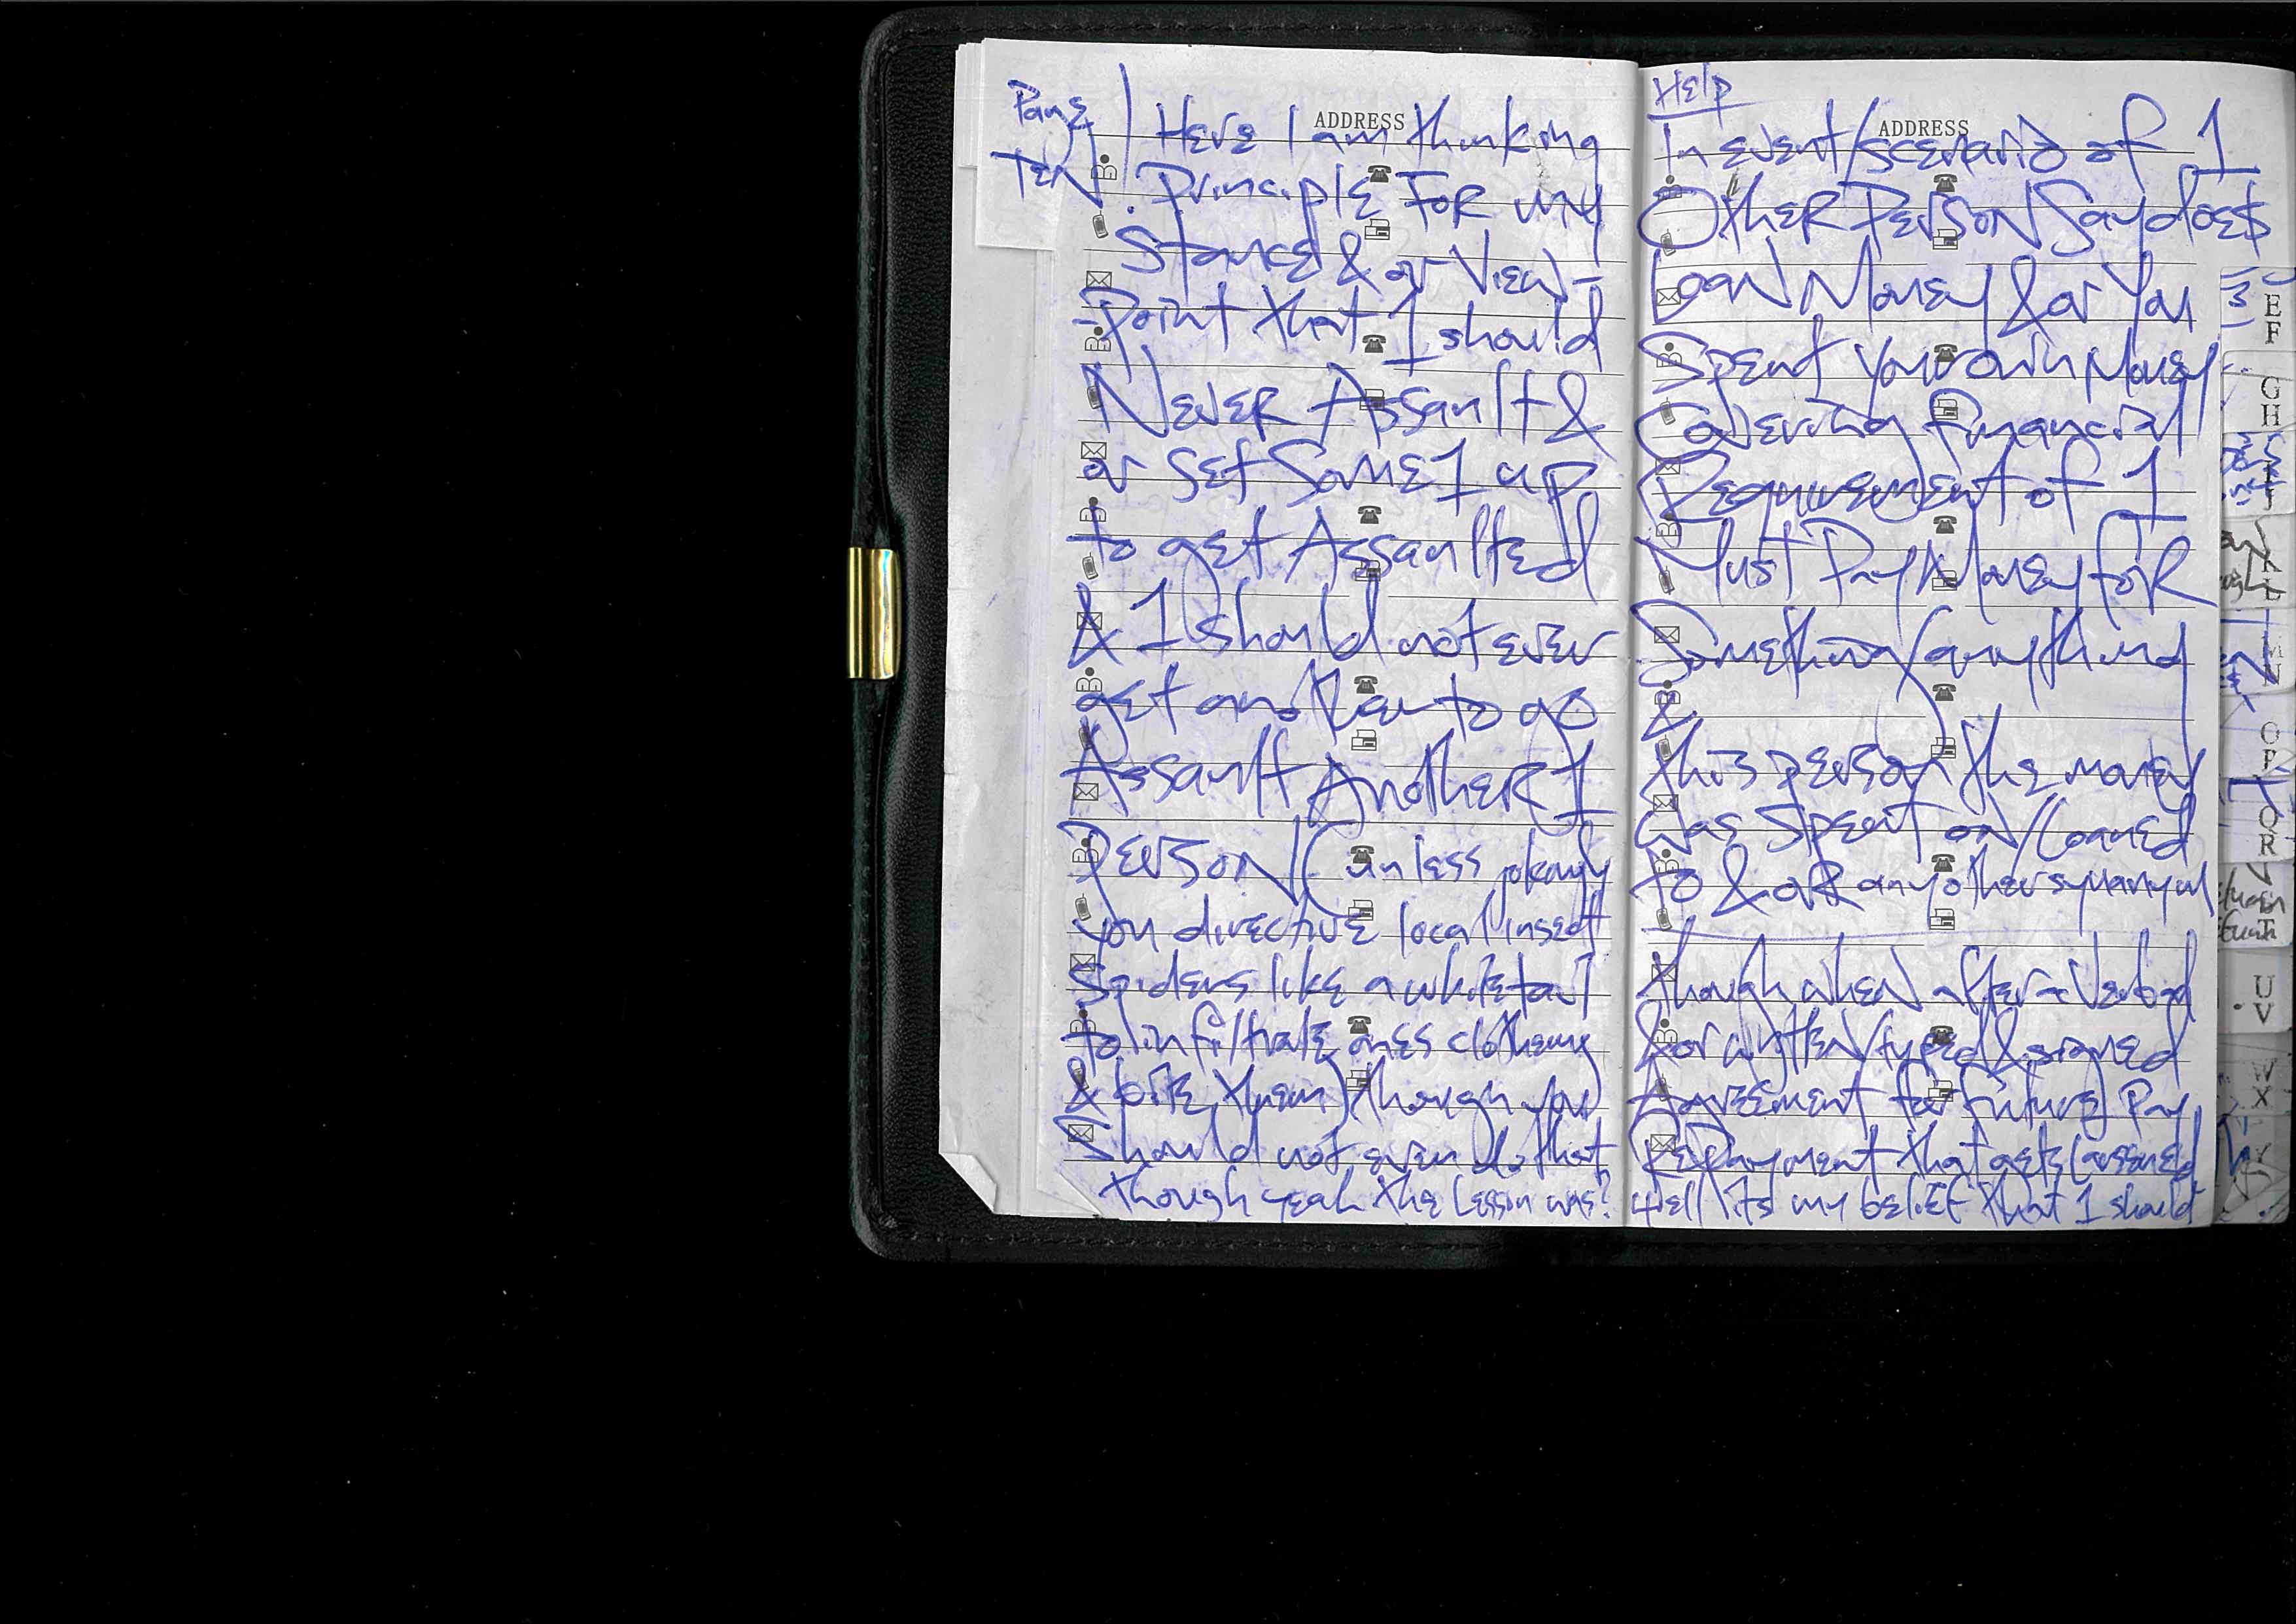 Page
TEN
ADDRESS
Here I am thinking
Principle FOR my
Stance & or View-
-Point that 1 should
NEVER Assault &
or set Some1 up
to get Assaulted
& 1 should not ever
get another to go
Assault AnotheR 1
PERSON (unless
you directive local insect
Spiders like a whitetail
to infiltrate ones clothing
& bite them) though you
Should not even do that
though yeah the Lesson was?
HElp
ADDRESS
In event/scenario of 1
OtheR PERSON Say does
Loan Money & or You
Spent Your own Money
Covering financial
Requirement of 1
Must Pay Money foR
Something/anything
&
this person the money
was Spent on/loaned
to & oR any other
though when after a Verbal
& or written/typed & signed
Agreement for future Pay
RePayment that gets
well its my belief that 1 should
E
F
G
H
I
J
K
L
M
N
O
P
Q
R
T
U
V
W
X
Y